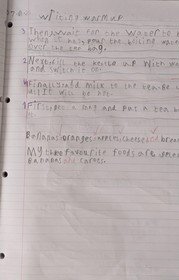 writing warm up
3 Then, wait for the water to
when it hot, pour the boiling water
over the tea bag.
2 Next, fill the kettle up with
and switch it on.
4 Finally, add milk to the tea. Be
it will be hot.
1 First, get a mug and put a tea
Bananas oranges apples, cheese and
My three favourite foods are
Bananas and carrots.